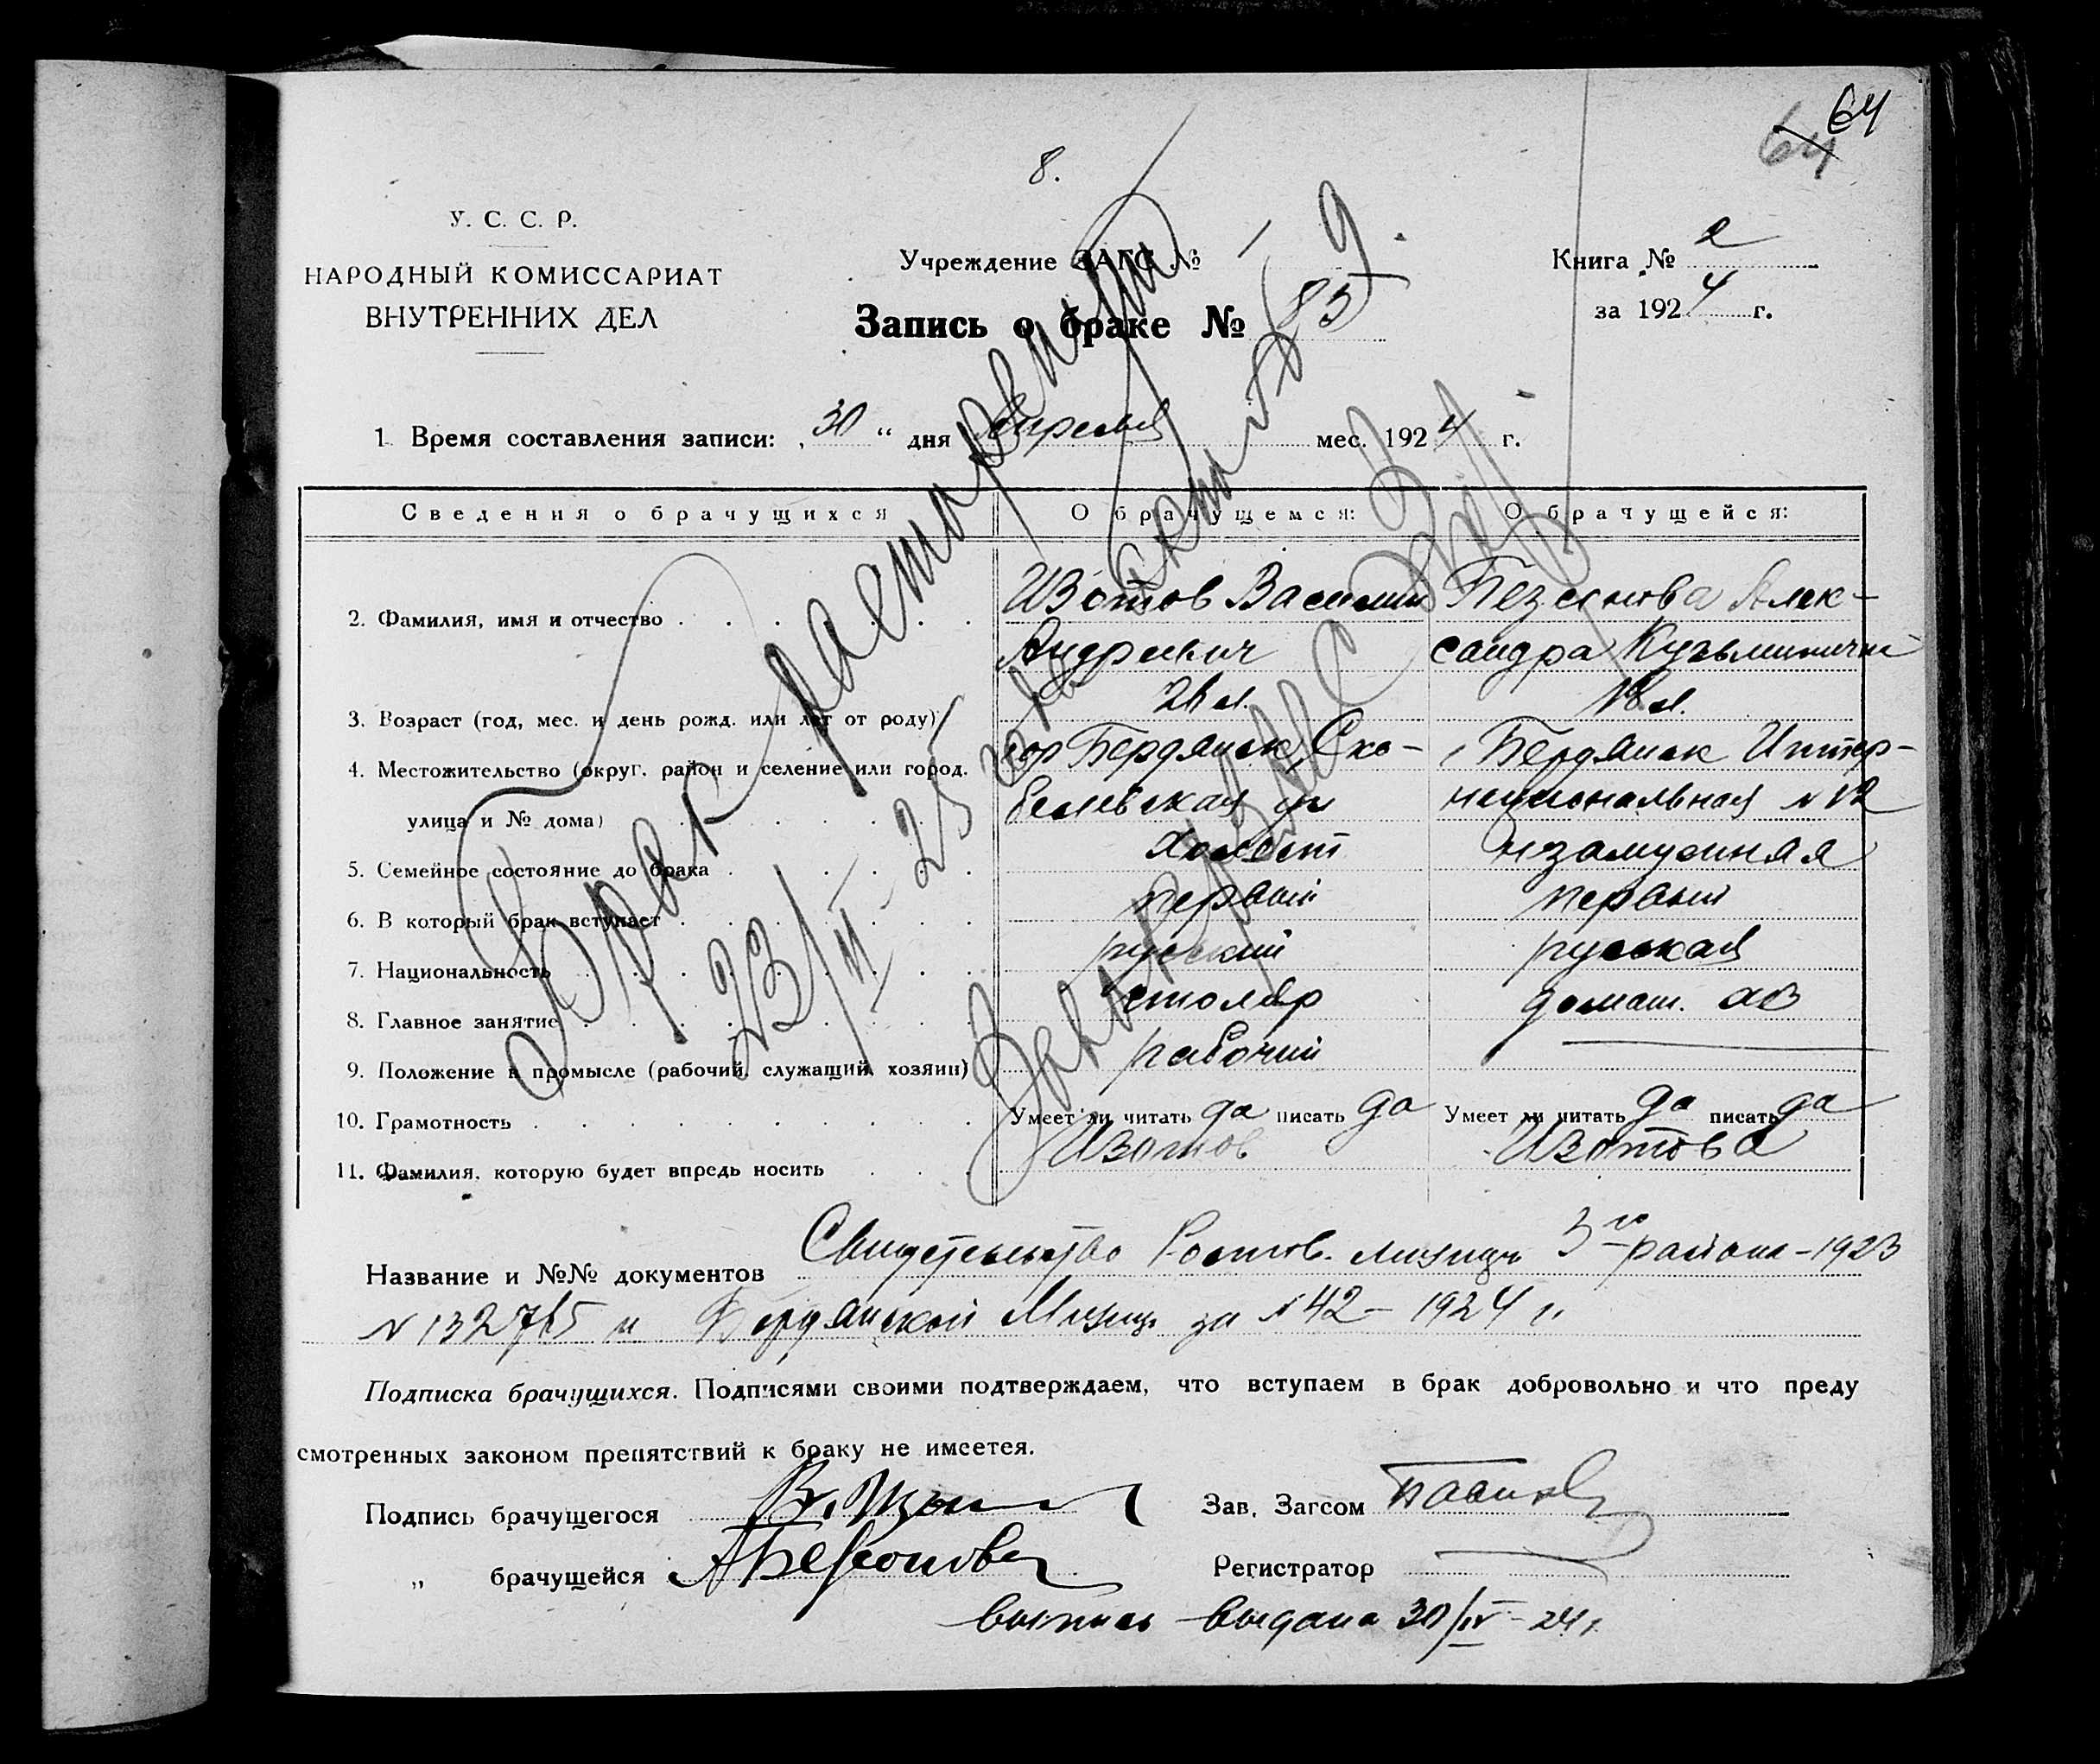 64
64
8.
У. С. С. Р.
НАРОДНЫЙ КОМИССАРИАТ
ВНУТРЕННИХ ДЕЛ
Учреждение ЗАГС №
Запись о браке № 83
Книга № 2
за 1924 г.
1. Время составления записи: „30" дня Апреля мес. 1924 г.
Сведения о брачущихся
О брачущемся:
О брачущейся:
2. Фамилия, имя и отчество
Изотов Василий
Андреевич
Безсонова Алек-
сандра Кузьминична
3. Возраст (год, мес. и день рожд. или лет от роду)
18 л.
4. Местожительство (округ, район и селение или город,
улица и № дома)
гор Бердянск, Ско-
белевская ул
Бердянск Интер-
национальная № 12
5. Семейное состояние до брака
Холост
незамужняя
6. В который брак вступает
первый
первый
7. Национальность
русский
русская
8. Главное занятие
столяр
домаш. хоз
9. Положение в промысле (рабочий, служащий, хозяин)
рабочий
10. Грамотность
Умеет ли читать да писать да
Умеет ли читать да писать да
11. Фамилия, которую будет впредь носить
Изотов
Изотова
Брак расторгнут
23/II 25
Название и №№ документов Свидетельство Ростов. милиц. 3го района - 1923
и Бердянской Милиц. за № 42 - 1924 г.
Подписка брачущихся. Подписями своими подтверждаем, что вступаем в брак добровольно и что преду
смотренных законом препятствий к браку не имеется.
Подпись брачущегося
Зав. Загсом
„ брачущейся АБезсонова
Регистратор
выпись выдана 30/IV - 24 г.